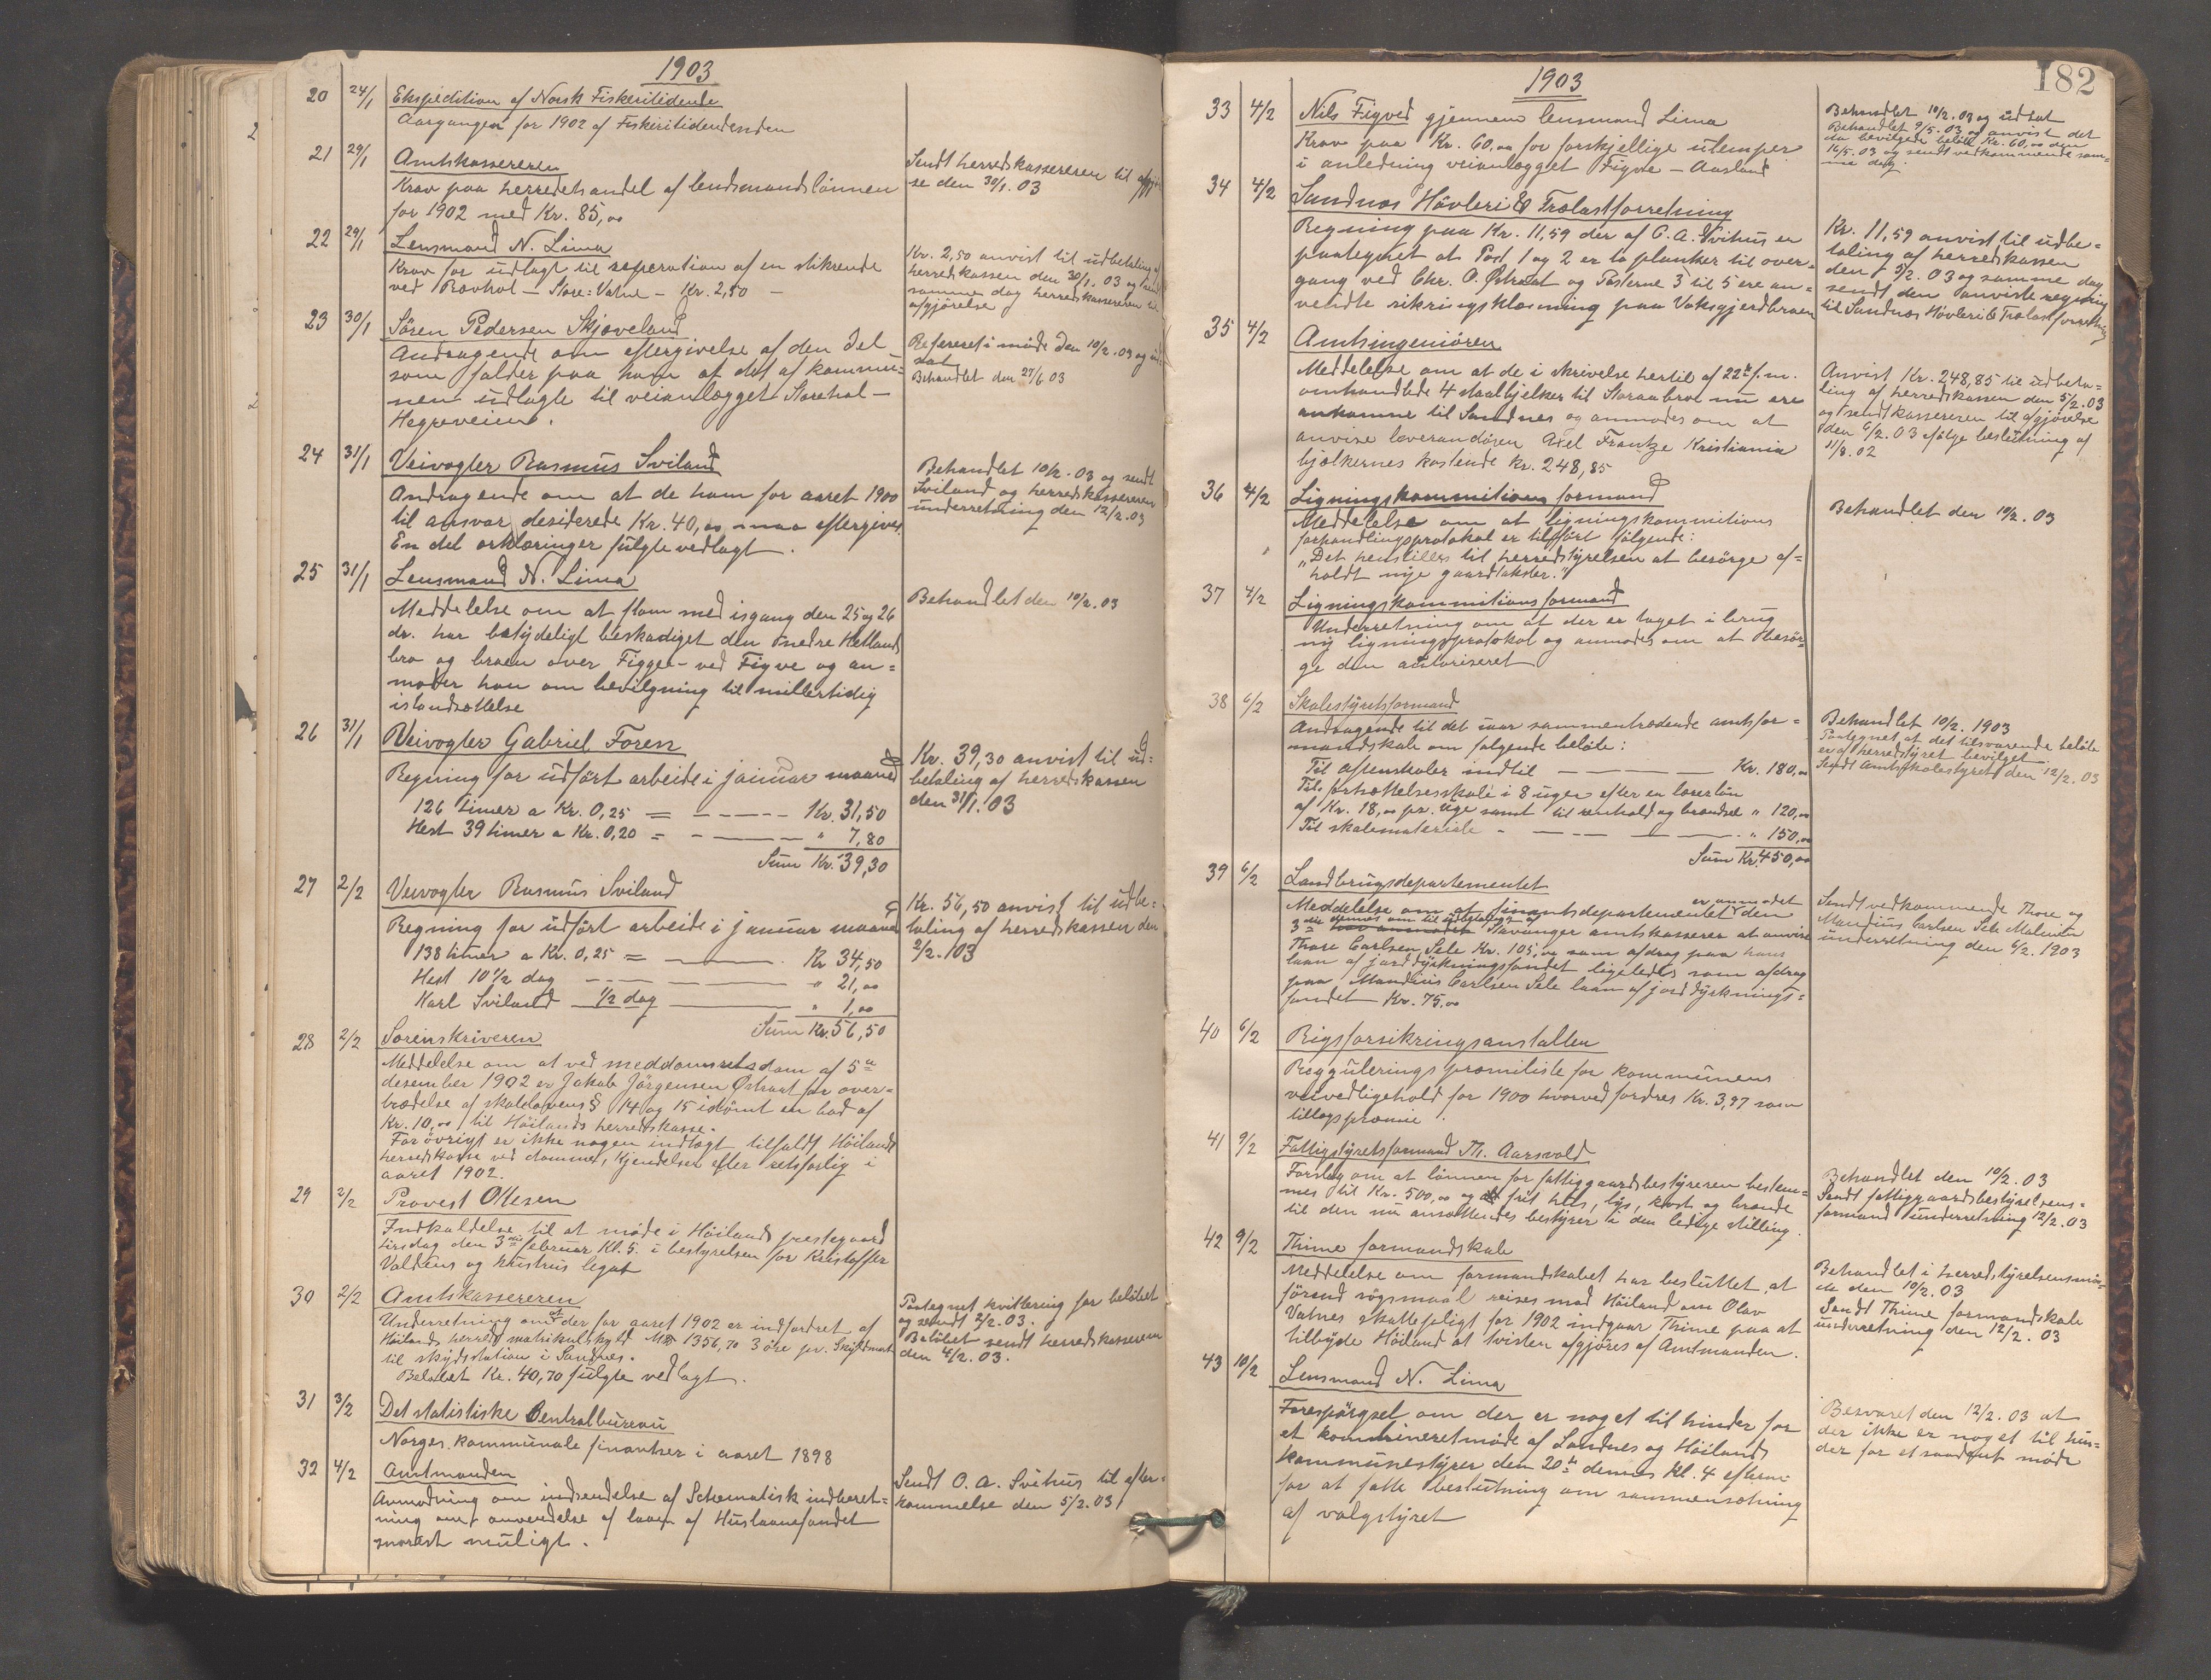 1903
20 24/1 Ekspedition af Norsk Fiskeritidende
Aargangen for 1902 af Fiskeritidendenden
21 29/1 Amtskassereren
Krav paa herredehandel af lendsmandslönnen
for 1902 med Kr. 85,00
Sendt herredskassereren til afgjö-
se den 30/1. 03
22 29/1 Lensmand N. Lima
Krav for udlagt til reperation af en stikrende
ved Rovhol - Store-Vatne - Kr. 2,50 -
Kr. 2,50 anvist til udbetaling af
herredskassen den 30/1. 03 og sendt
samme dag herredskassereren til
afgjörelse
23 30/1 Sören Pedersen Skjæveland
Andragende om eftergivelse af den del
som falder paa ham af det af kommu-
nen udlagte til veianlægget Storehol -
Hegreveiene.
Refereret i møde den 10/2. 03 og ud-
sat
Behandlet den 27/6 03
24 31/1 Veivogter Rasmus Sviland
Andragende om at de ham for aaret 1900
til ansvar desiderede Kr. 40,00 maa eftergives.
En del erklæringer fulgte vedlagt.
Behandlet 10/2. 03 og sendt
Sviland og herredskassereren
underretning den 12/2. 03
25 31/1 Lensmand N. Lima
Meddelelse om at flom med isgang den 25 og 26
ds. har betydeligt beskadiget den nedre Hetland
bro og broen over Figgen - ved Figve og an-
moder han om bevilgning til midlertidig
istandsættelse
Behandlet den 10/2. 03
26 31/1 Veivogter Gabriel Foren
Regning for udført arbeide i januar maaned
126 timer a Kr. 0,25 = Kr. 31,50
Hest 39 timer a Kr. 0,20 = " 7,80
Sum Kr. 39,30
Kr. 39,30 anvist til ud-
betaling af herredskassen
den 31/1. 03
27 2/2 Veivogter Rasmus Sviland
Regning for udført arbeide i januar maaned
138 timer a Kr. 0,25 = Kr 34,50
Hest 10 1/2 dag " 21,00
Karl Sviland 1/2 dag " 1,00
Sum Kr. 56,50
Kr. 56,50 anvist til udbe-
taling af herredskassen den
2/2. 03
28 2/2 Sorenskriveren
Meddelelse om at ved meddomsretsdom af 5te
desember 1902 er Jakob Jörgensen Østraat for over-
trædelse af skolelovens § 14 og 15 idömt en bod af
Kr. 10,00 til Höilands herredskasse.
For övrigt er ikke nogen indtægt tilfaldt Höilands
herredskasse ved domme, kjendelser eller retsforlig i
aaret 1902.
29 2/2 Provest Olesen
Indkaldelse til at møde i Höilands prestegaard
tirsdag den 3die februar Kl. 5. i bestyrelsen for Kristoffer
Valdens og hustrus legat
30 2/2 Amtskassereren
Underretning om at der for aaret 1902 er indfordret af
Höilands herreds matrikulskyld Mk 1356,70 3 öre pr. Skyldmark
til skydsstation i Sandnes.
Beløbet Kr. 40,70 fulgte vedlagt.
Paategnet kvittering for belöbet
og sendt 2/2. 03.
Belöbet sendt herredskassereren
den 4/2. 03.
31 3/2 Det statistiske Centralbureau
Norges kommunale finantser i aaret 1898
32 4/2 Amtmanden
Anmodning om indsendelse af Schematisk indberet-
ning om anvendelse af laan af Huslaanefondet
snarest muligt.
Sendt O. A. Svihus til efter-
kommelse den 5/2. 03
1903
182
33 4/2 Nils Figved gjennem lensmand Lima
Krav paa Kr. 60,00 for forskjellige ulemper
i anledning veianlægget Figve - Aasland
Behandlet 10/2. 03 og udsat
Behandlet 9/5. 03 og anvist det
da bevilgede beløb Kr. 60,00 den
16/5. 03 og sendt vedkommende sam-
me dag.
34 4/2 Sandnes Hövleri & Trælastforretning
Regning paa Kr. 11,59 der af O. A. Svihus er
paategnet at Post 1 og 2 er to planker til over-
gang ved Chr. O. Østraat og Posterne 3 til 5 ere an-
vendte sikringsklædning paa Vaksgjerdbroen
Kr. 11,59 anvist til udbe-
taling af herredskassen
den 5/2. 03 og samme dag
sendt den anviste regning
til Sandnes Hövleri & Trælastforretning
35 4/2 Amtsingeniören
Meddelelse om at de i skrivelse hertil af 22de f. m.
omhandlede 4 staalbjelker til Storaabroen nu ere
ankomne til Sandnes og anmodes om at
anvise leverandören Axel Frantze Kristiania
bjælkernes kostende Kr. 248,85
Anvist Kr. 248,85 til udbeta-
ling af herredskassen den 5/2. 03
og sendt kassereren til afgjörelse
den 6/2. 03 ifölge beslutning af
11/8. 02
36 4/2 Ligningskommitions formand
Meddelelse om at ligningskommitions
forhandlingsprotokol er tilfört fölgende:
"Det henstilles til herredstyrelsen at besörge af-
holdt nye gaardtakster."
Behandlet den 10/2. 03
37 4/2 Ligningskommitions formand
Underretning om at der er taget i brug
ny ligningsprotokol og anmodes om at besör-
ge den autoriseret
38 6/2 Skolestyretsformand
Andragende til det iaar sammentrædende amtsfor-
mandskab om følgende beløb:
Til aftenskoler indtil Kr. 180,00
Til fortsættelsesskole i 8 uger efter en lærerlön
af Kr. 18,00 pr. uge samt til renhold og brændsel " 120,00
Til skolemateriale " 150,00
Sum Kr. 450,00
Behandlet 10/2. 1903
Paategnet at det tilsvarende beløb
er af herredstyret bevilget.
Sendt Amtsskolestyret den 12/2. 03
39 6/2 Landbrugsdepartementet
er anmodet
Meddelelse om at finantsdepartementet den
3die dennes om til udbetaling af Stavanger amtskasserer at anvise
Those Carlsen Sele Kr. 105,00 som afdrag paa hans
laan af jorddyrkningsfondet ligeledes som afdrag
paa Mandius Carlsen Sele laan af jorddyrknings-
fondet Kr. 75,00
Sendt vedkommende Those og
Mandius Carlsen Sele Malmin
underretning den 6/2. 1903
40 6/2 Rigsforsikringsanstalten
Reguleringspræmiliste for kommunens
veivedligehold for 1900 hvorved fordres Kr. 3,97 som
tillægspræmie.
41 9/2 Fattigstyretsformand Th. Aarsvold
Forslag om at lönnen for fattiggaardsbestyreren bestem-
mes til Kr. 500,00 og frit hus, lys, kost og brænde
til den nu ansættendes bestyrer i den ledige stilling.
Behandlet den 10/2. 03
Sendt fattiggaardsbestyrelsens-
formand underretning 12/2. 03
42 9/2 Thime formandskab
Meddelelse om formandskabet har besluttet, at
förend sögsmaal reises mod Höiland om Olav
Vatnes skattepligt for 1902 indgaar Thime paa at
tilbyde Höiland at tvisten afgjöres af Amtmanden.
Behandlet i herredstyrelsensmø-
de den 10/2. 03
Sendt Thime formandskab
underretning den 12/2. 03
43 10/2 Lensmand N. Lima
Forespörgsel om der er noget til hinder for
et kombineretmøde af Sandnes og Höilands
kommunestyrer den 20de dennes Kl. 4 efterm
for at fatte beslutning om sammensætning
af valgstyret
Besvaret den 12/2. 03 at
der ikke er noget til hin-
der for et saadant møde